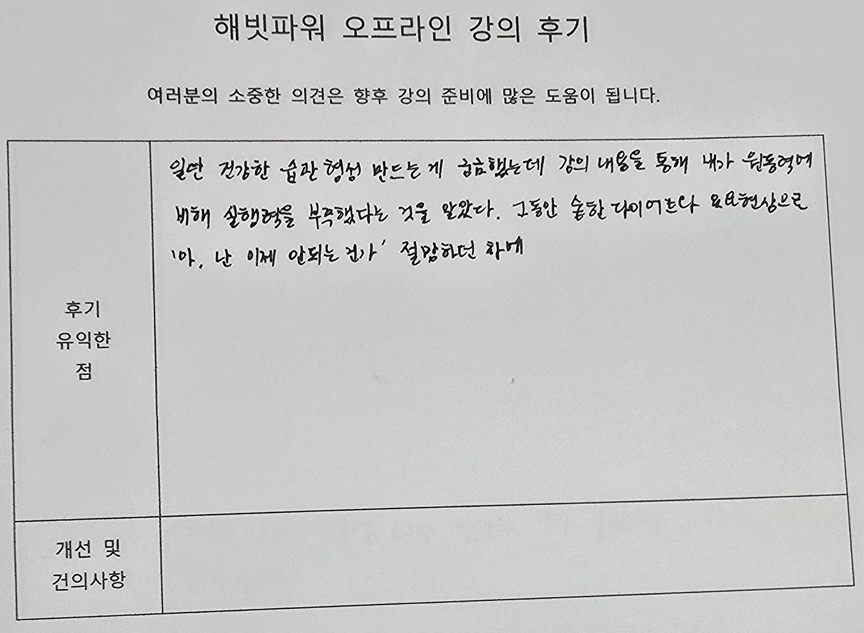 해빗파워 오프라인 강의 후기
여러분의 소중한 의견은 향후 강의 준비에 많은 도움이 됩니다.
일면 건강한 습관 형성 만드는게 궁금했는데 강의 내용을 통해 내가 원동력에
비해 실행력을 부족했다는 것을 알았다. 그동안 숱한 다이어트와 요요현상으로
'아, 난 이제 안되는건가' 절망하던 차에
후기
유익한
점
개선 및
건의사항